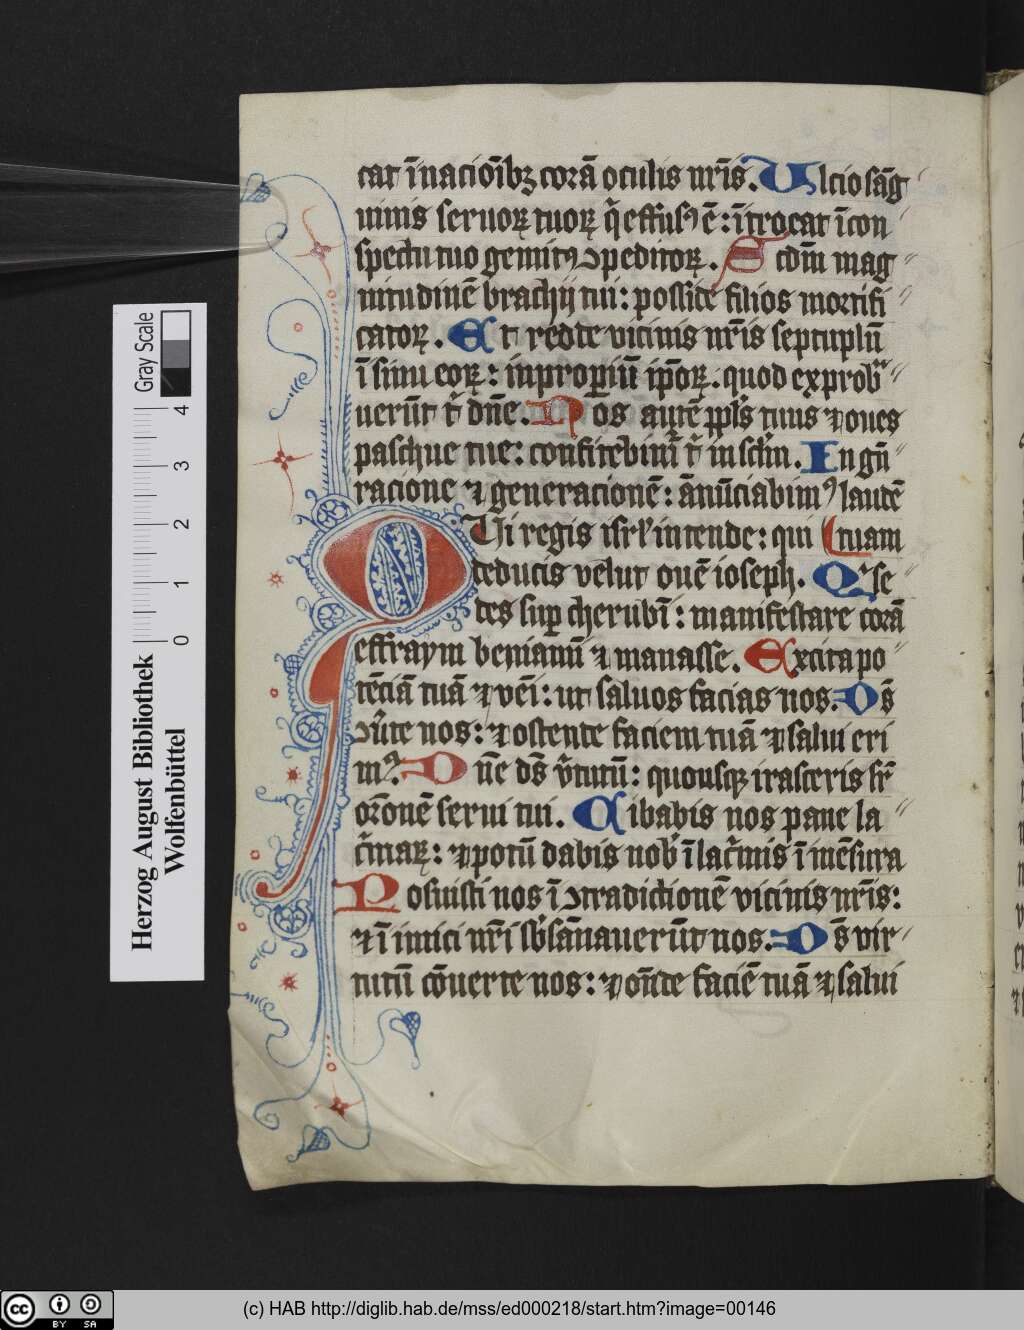 cat ī nacioībꝫ corā oculis nr̄is. Ulcio sāg
uinis seruoꝝ tuoꝝ q̄ effusꝰ ē: ītrocat ī con
spectu tuo gemitꝰ ↄpeditoꝝ. Scd̄m mag
nitudinē brachij tui: posside filios mortifi
catoꝝ. Et redde vicinis nr̄is septuplū
ī sinu eoꝝ: inproꝑiū ip̄oꝝ. quod exprob
uerūt t̄ dn̄e. Nos autē ppl̓s tuus ⁊ oues
paschue tue: confitebimꝰ t̄ in scl̄m. In gn̄
racione ⁊ generacionē: ānūciabimꝰ laudē
Qui regis isrl̓ intende: qui tuam
deducis velut ouē ioseph. Qi se
des suꝑ cherubī: manifestare corā
effraym beniamī ⁊ manasse. Excita po
tēciā tuā ⁊ vēi: ut saluos facias nos. Ds̄
ↄu̓te nos: ⁊ ostende faciem tuā ⁊ salui eri
mꝰ. Dn̄e ds̄ v̓tutū: quousqꝫ irasceris sr̄
or̄onē serui tui. Cibabis nos pane la
c̓maꝝ: ⁊ potū dabis nob̓ ī lac̓mis ī mēsura
Posuisti nos ī ↄtradictionē vicinis nr̄is:
⁊ īimici nr̄i sb̓sānauerūt nos. Ds̄ vir
tutū cōuerte nos: ⁊ oñde faciē tuā ⁊ salui
Gray Scale
0 1 2 3 4
Herzog August Bibliothek
Wolfenbüttel
cc BY SA
(c) HAB http://diglib.hab.de/mss/ed000218/start.htm?image=00146